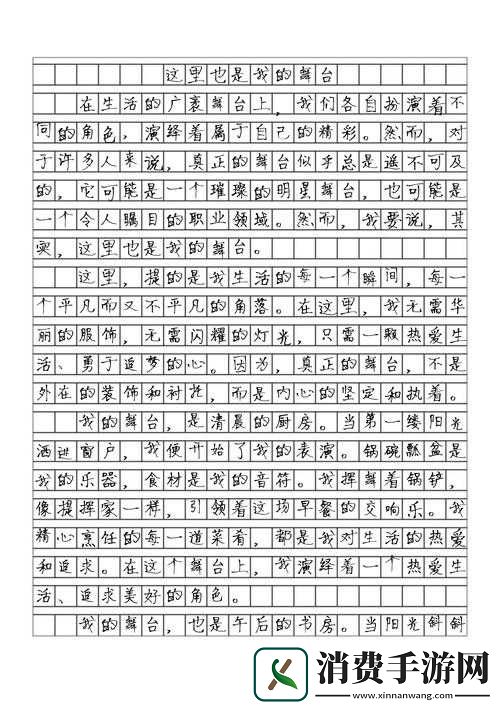 这里也是我的舞台
在生活的广袤舞台上，我们各自扮演着不
同的角色，演绎着属于自己的精彩。然而，对
于许多人来说，真正的舞台似乎总是遥不可及
的，它可能是一个璀璨的明星舞台，也可能是
一个令人瞩目的职业领域。然而，我要说，其
实，这里也是我的舞台。
这里，提的是我生活的每一个瞬间，每一
个平凡而又不平凡的角落。在这里，我无需华
丽的服饰，无需闪耀的灯光，只需一颗热爱生
活、勇于追梦的心。因为，真正的舞台，不是
外在的装饰和衬托，而是内心的坚定和执着。
我的舞台，是清晨的厨房。当第一缕阳光
洒进窗户，我便开始了我的表演。锅碗瓢盆是
我的乐器，食材是我的音符。我挥舞着锅铲，
像提挥家一样，引领着这场早餐的交响乐。我
精心烹任的每一道菜肴，都是我对生活的热爱
和追求。在这个舞台上，我演绎着一个热爱生
活、追求美好的角色。
我的舞台，也是午后的书房。当阳光斜斜
消费手游网
www.xinnanwang.com